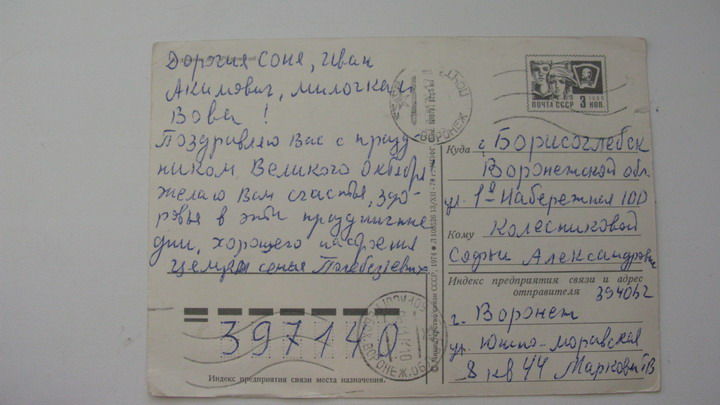 Дорогия Соня, Иван
Акимович, милочка и
Вова!
Поздравляю Вас с празд
ником Великого Октября,
желаю Вам счастья, здо-
ровья в эти праздничные
дни, хорошего настроения
Целуем семья
ПОЧТА СССР 3 КОП.
ВОРОНЕЖ
Куда г. Борисоглебск
Воронежской обл.
ул. 1я Набережная 100
Кому Колесниковой
Софии Александровне
Индекс предприятия связи и адрес
отправителя 394062
г. Воронеж
ул. Южно-моравская
8 кв 44
397140
Индекс предприятия связи места назначения.